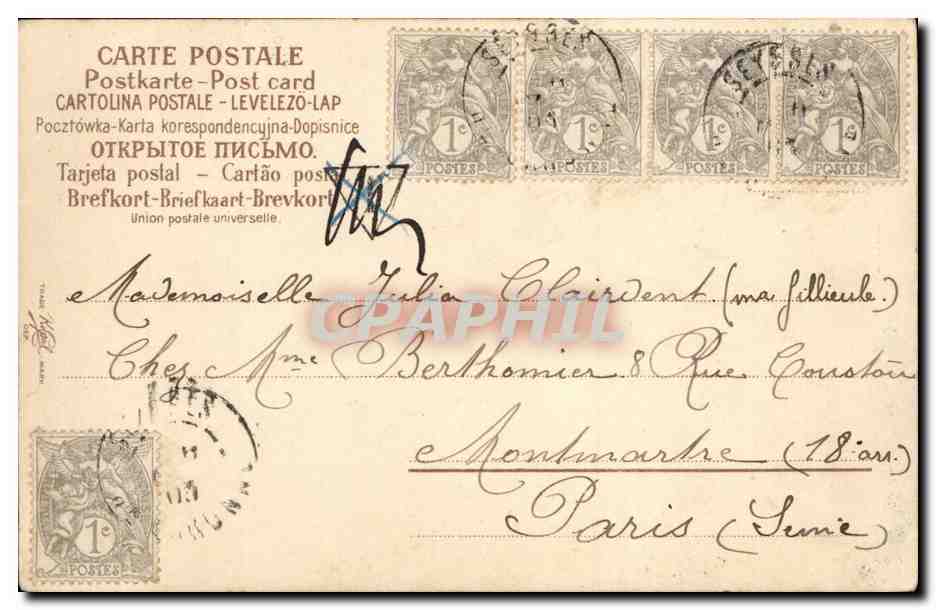 CARTE POSTALE
Postkarte-Post card
CARTOLINA POSTALE-LEVELEZÖ-LAP
Pocztówka-Karta korespondencyjna-Dopisnice
ОТКРЫТОЕ ПИСЬМО.
Tarjeta postal - Cartão post
Brefkort-Briefkaart-Brevkort
Union postale universelle.
1c POSTES
1c POSTES
1c POSTES
1c POSTES
Mademoiselle Julia Clairdent (ma fillieule.)
CPAPHIL
Chez Mme Berthomier 8 Rue Coustou
Montmartre (18e arr.)
Paris (Seine)
TRADE
MARK
1c
POSTES